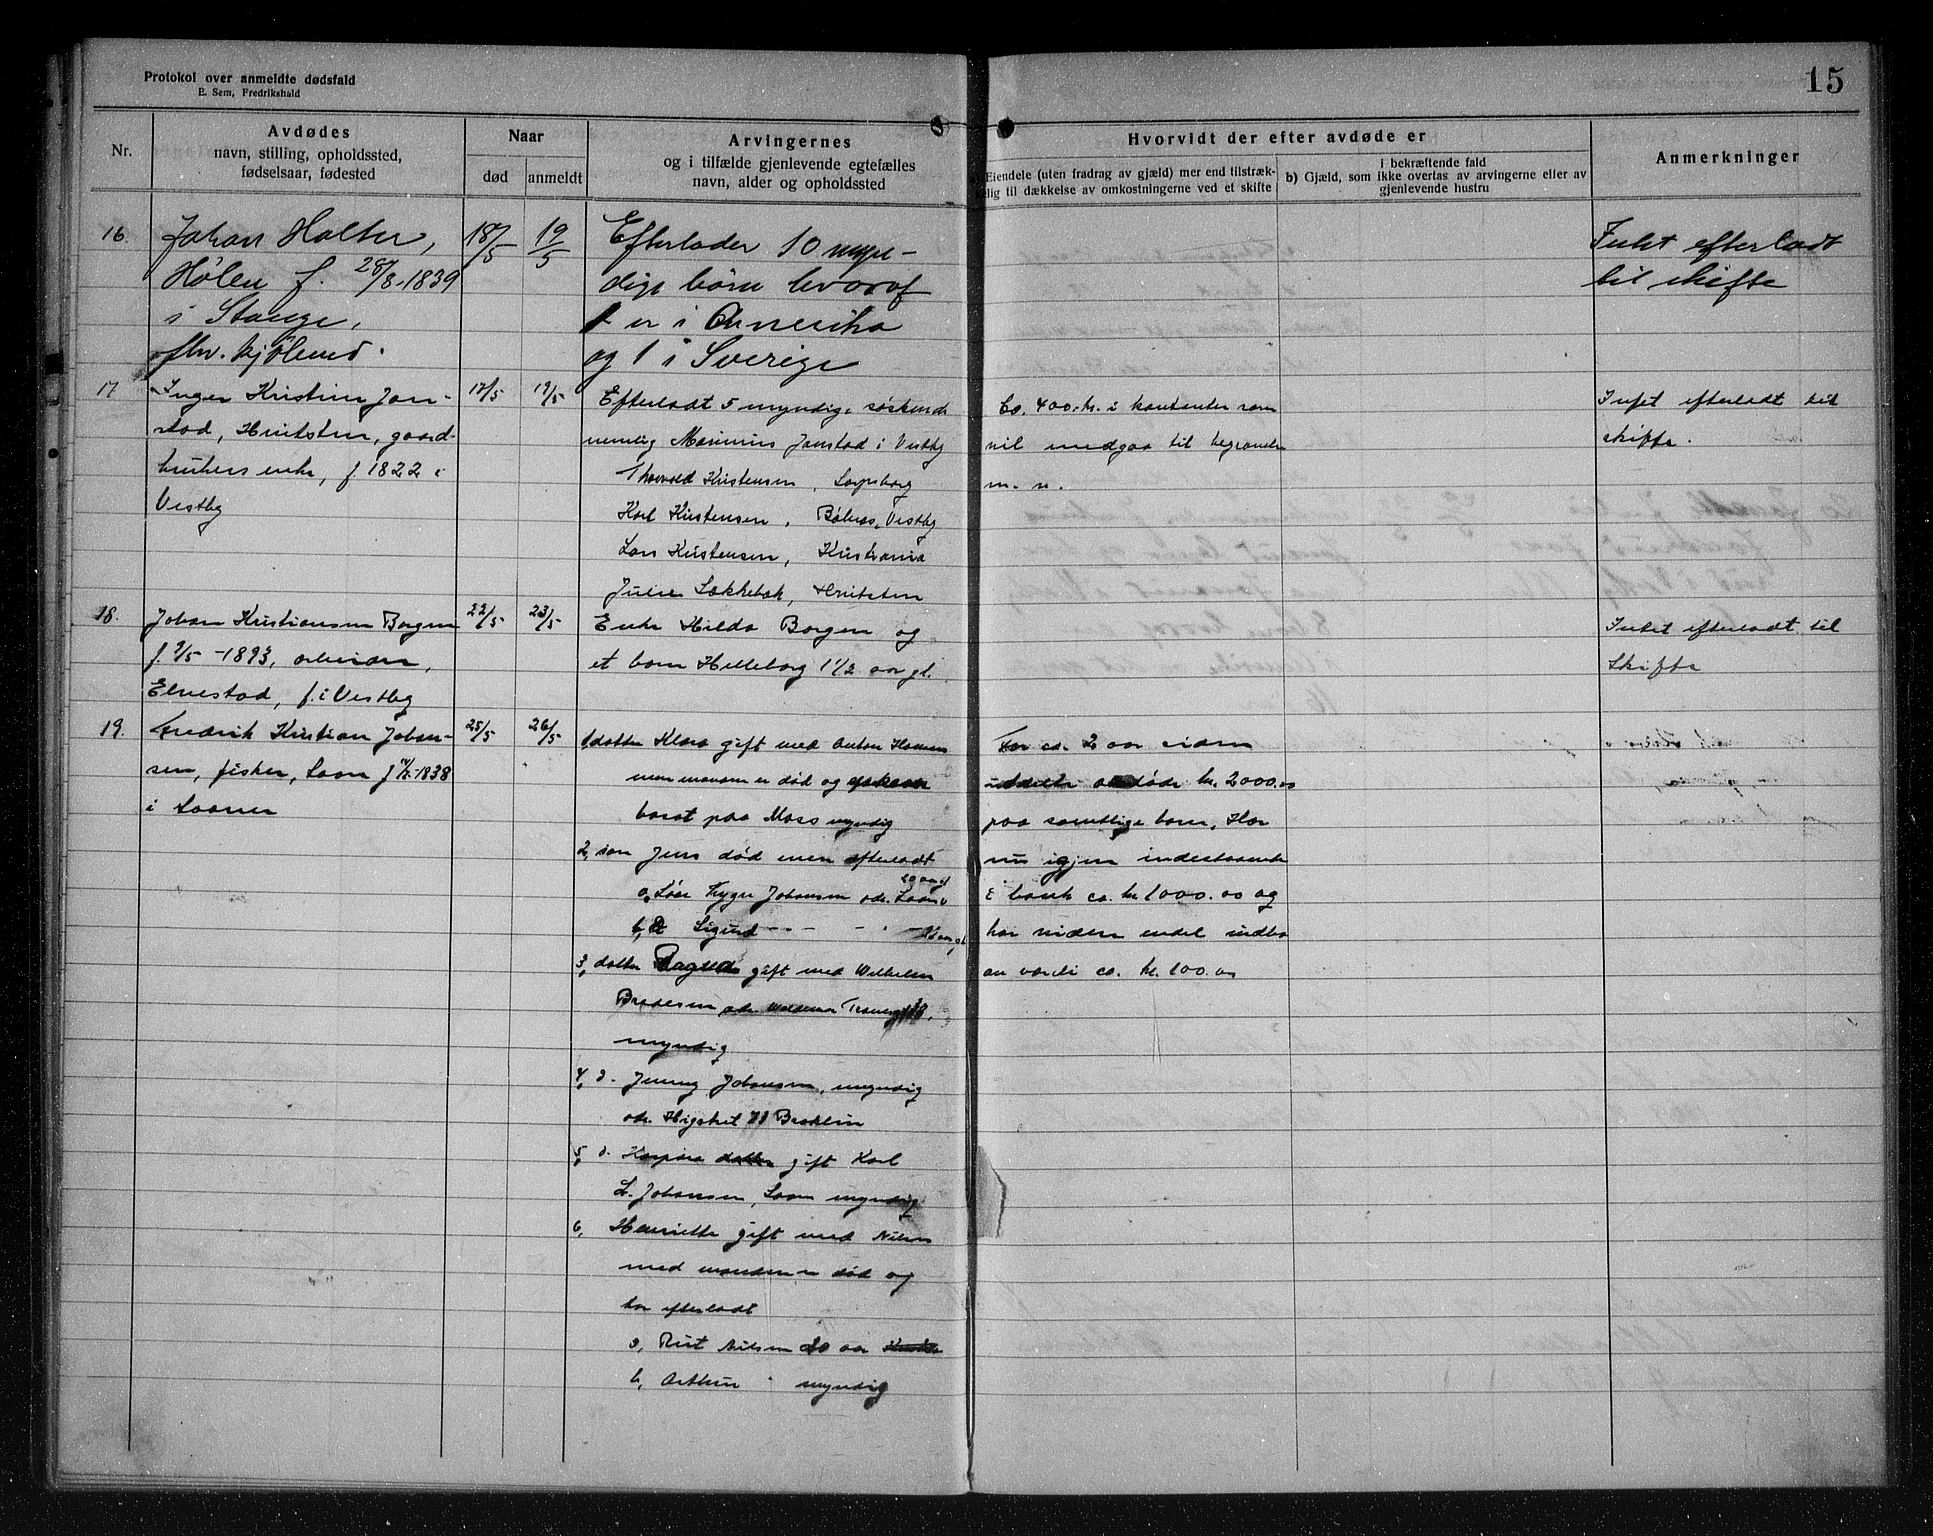 Protokol over anmeldte dødsfald
E. Sem, Fredrikshald
15
Nr.
Avdødes
navn, stilling, opholdssted,
fødselsaar, fødested
Naar
død
anmeldt
Arvingernes
og i tilfælde gjenlevende egtefælles
navn, alder og opholdssted
Hvorvidt der efter avdøde er
Eiendele (uten fradrag av gjæld) mer end tilstræk-
lig til dækkelse av omkostningerne ved et skifte
i bekræftende fald
b) Gjæld, som ikke overtas av arvingerne eller av
gjenlevende hustru
Anmerkninger
16.
Johan Holter,
Hølen f. 28/8-1839
i Stange,
fhv. kjøbmd.
18/5
19/5
Efterlader 10 myn-
dige børn hvorav
1 er i Amerika
og 1 i Sverige
Intet efterladt
til skifte
17
Inger Kristine Jon-
stad, Hvitsten, gaard-
brukers enke, f. 1822 i
Vestby
17/5
19/5
Efterladt 5 myndige søskende
nemlig Marinius Jonstad i Vestby
Thorvald Kristensen, Sarpsborg
Karl Kristensen, Vestby
Lars Kristensen, Kristiania
Julie Løkkebak, Hvitsten
Ca. 400 kr. i kontanter som
vil medgaa til begravelse
m. v.
Intet efterladt til
skifte.
18.
Johan Kristiansen Borgen
f. 9/5-1893, arbeider,
Elvestad, f. i Vestby
22/5
23/5
Enke Hilda Borgen og
et barn Hilleborg 1 1/2 aar gl.
Intet efterladt til
Skifte
19.
Fredrik Kristian Johan-
sen, fisker, Soon f. -1838
i Sooner
25/5
26/5
1 datter Klara gift med Anton Hansen
men manden er død og
bosat paa Moss myndig
2, søn Jens død men efterladt
20 aar gl
a, Trygve Johansen adr. Soon
b, Sigurd
3, datter Dagny gift med Wilhelm
myndig
4, d. Jenny Johansen, myndig
adr. Brooklin
5, d. gift Karl
L. Johansen, Soon myndig
6, Henriette gift med Nilsen
med manden er død og
har efterladt
a, Rut Nilsen 20 aar
b, Arthur " myndig
For ca. 2 aar siden
uddelte avdøde kr. 2000.00
paa samtlige barn. Har
nu igjen indestaaende
i bank ca. kr. 1000.00 og
har videre endel indbo
av værdi ca. kr. 100.00